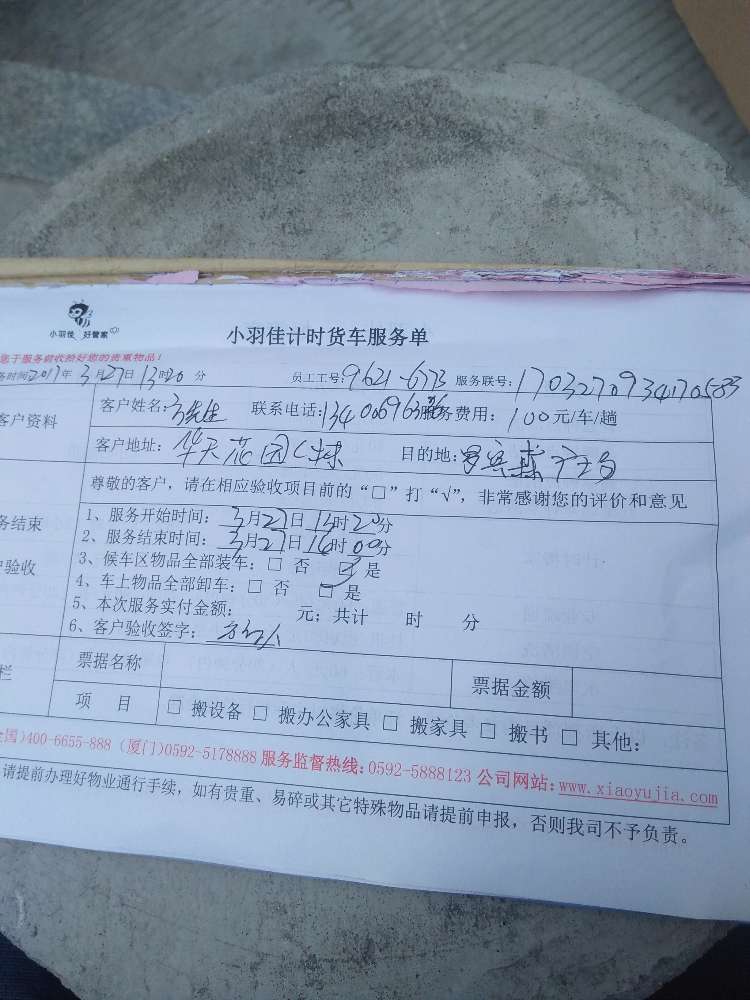 小羽佳 好管家
小羽佳计时货车服务单
您于服务前收拾好您的贵重物品!
务时间2017年3月27日13时20分 员工工号:9621-6773 服务联号:1703270934170583
客户资料
客户姓名: 先生 联系电话: 服务费用:100元/车/趟
客户地址:华天花园 目的地:
尊敬的客户，请在相应验收项目前的“□”打“√”，非常感谢您的评价和意见
务结束
户验收
1、服务开始时间:3月27日13时20分
2、服务结束时间:3月27日16时00分
3、候车区物品全部装车:□ 否 ☑ 是
4、车上物品全部卸车:□ 否 □ 是
5、本次服务实付金额: 元;共计 时 分
6、客户验收签字:
栏
票据名称 票据金额
项 目 □ 搬设备 □ 搬办公家具 □ 搬家具 □ 搬书 □ 其他:
全国)400-6655-888 (厦门)0592-5178888 服务监督热线:0592-5888123 公司网站:www.xiaoyujia.com
请提前办理好物业通行手续，如有贵重、易碎或其它特殊物品请提前申报，否则我司不予负责。